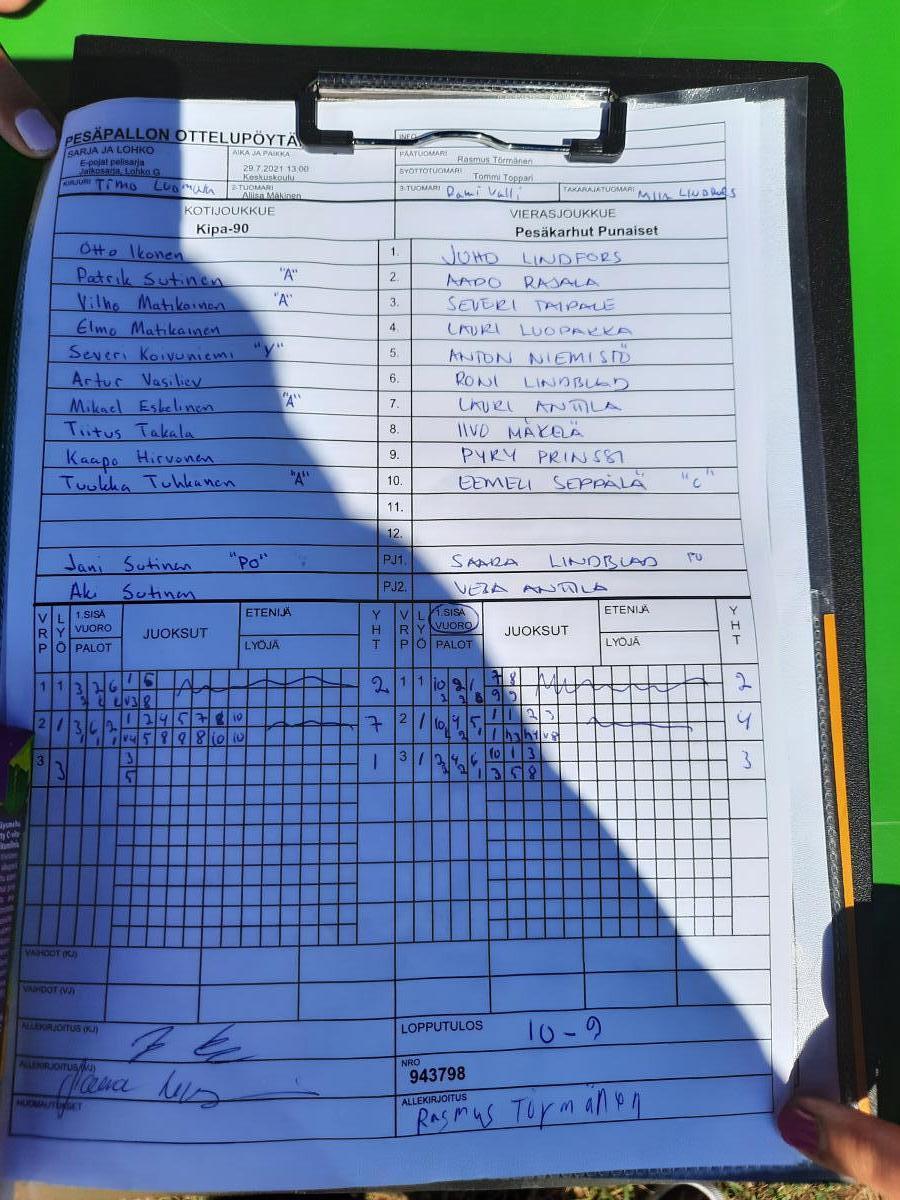 PESÄPALLON OTTELUPÖYTÄ
SARJA JA LOHKO
E-pojat pelisarja
Jatkosarja, Lohko G
AIKA JA PAIKKA
29.7.2021 13:00
Keskuskoulu
INFO
PÄÄTUOMARI Rasmus Törmänen
SYÖTTÖTUOMARI Tommi Toppari
KIRJURI Timo
2-TUOMARI Aliisa Mäkinen
3-TUOMARI Rami Valli
TAKARAJATUOMARI
KOTIJOUKKUE
Kipa-90
VIERASJOUKKUE
Pesäkarhut Punaiset
Otto Ikonen 1. JUHO LINDFORS
Patrik Sutinen "A" 2. AAPO RAJALA
Vilho Matikainen "A" 3. SEVERI TAIPALE
Elmo Matikainen 4. LAURI LUOPAKKA
Severi Koivuniemi "V" 5. ANTON NIEMISTÖ
Artur Vasiliev 6. RONI LINDBLAD
Mikael Eskelinen "A" 7. LAURI ANTTILA
Tiitus Takala 8. IIVO MÄKELÄ
Kaapo Hirvonen 9. PYRY PRINSSI
Tuukka Tuhkanen "A" 10. EEMELI SEPPÄLÄ "C"
11.
12.
Jani Sutinen "PO" PJ1. SAARA LINDBLAD
Aki Sutinen PJ2. VESA ANTTILA
VRP LYÖ 1.SISÄ VUORO PALOT JUOKSUT ETENIJÄ LYÖJÄ YHT VRP LYÖ 1.SISÄ VUORO PALOT JUOKSUT ETENIJÄ LYÖJÄ YHT
1 1 3 2 6 1 6 2 1 1 10 2 1 7 8 2
2 1 3 6 2 1 2 4 5 7 8 10 7 2 1 10 4 5 1 1 2 3 4
3 3 3 1 3 1 2 4 6 10 1 3 3
5 3 5 8
VAIHDOT (KJ)
VAIHDOT (VJ)
ALLEKIRJOITUS (KJ)
LOPPUTULOS 10-9
ALLEKIRJOITUS (VJ)
NRO
943798
HUOMAUTUKSET
ALLEKIRJOITUS
Rasmus Törmänen